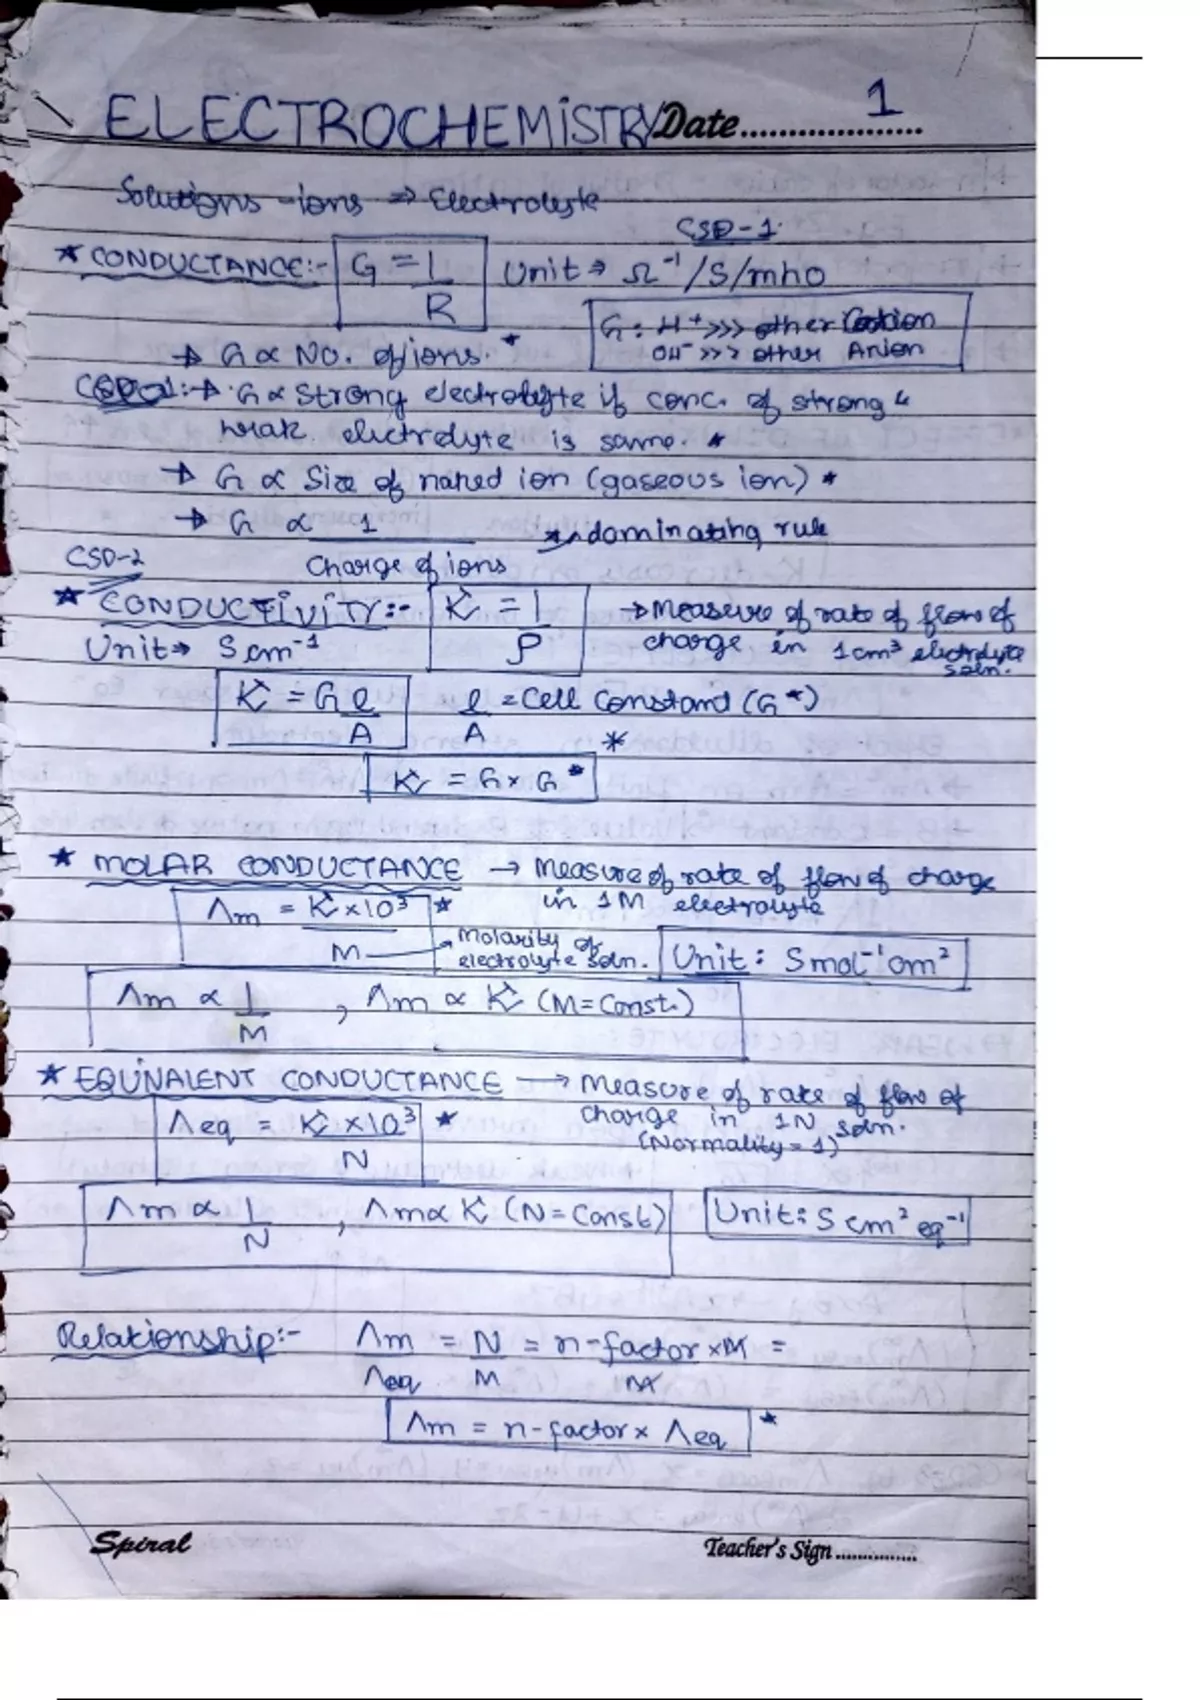 ELECTROCHEMISTRY Date.................... 1
Solutions - ions ⇒ Electrolyte
CSD-1
* CONDUCTANCE:- G = 1/R Unit ⇒ Ω⁻¹/S/mho
G: H⁺ >>> other Cation
OH⁻ >>> other Anion
→ G ∝ No. of ions. *
→ G ∝ Strong electrolyte if conc. of strong &
weak electrolyte is same. *
→ G ∝ Size of naked ion (gaseous ion) *
→ G ∝ 1/Charge of ions dominating rule
CSD-2
* CONDUCTIVITY:- K = 1/ρ → Measure of rate of flow of
charge in 1cm³ electrolyte
soln.
Unit ⇒ S cm⁻¹
K = G l/A l/A = Cell Constant (G*)
K = G × G* *
* MOLAR CONDUCTANCE → Measure of rate of flow of charge
in 1M electrolyte
Λm = K × 10³/M *
Molarity of
electrolyte soln. Unit: S mol⁻¹ cm²
Λm ∝ 1/M , Λm ∝ K (M = Const.)
* EQUIVALENT CONDUCTANCE → Measure of rate of flow of
charge in 1N soln.
(Normality = 1)
Λeq = K × 10³/N *
Λm ∝ 1/N , Λm ∝ K (N = Const) Unit: S cm² eq⁻¹
Relationship:- Λm/Λeq = N/M = n-factor × M/M =
Λm = n-factor × Λeq *
Spiral Teacher's Sign ...............